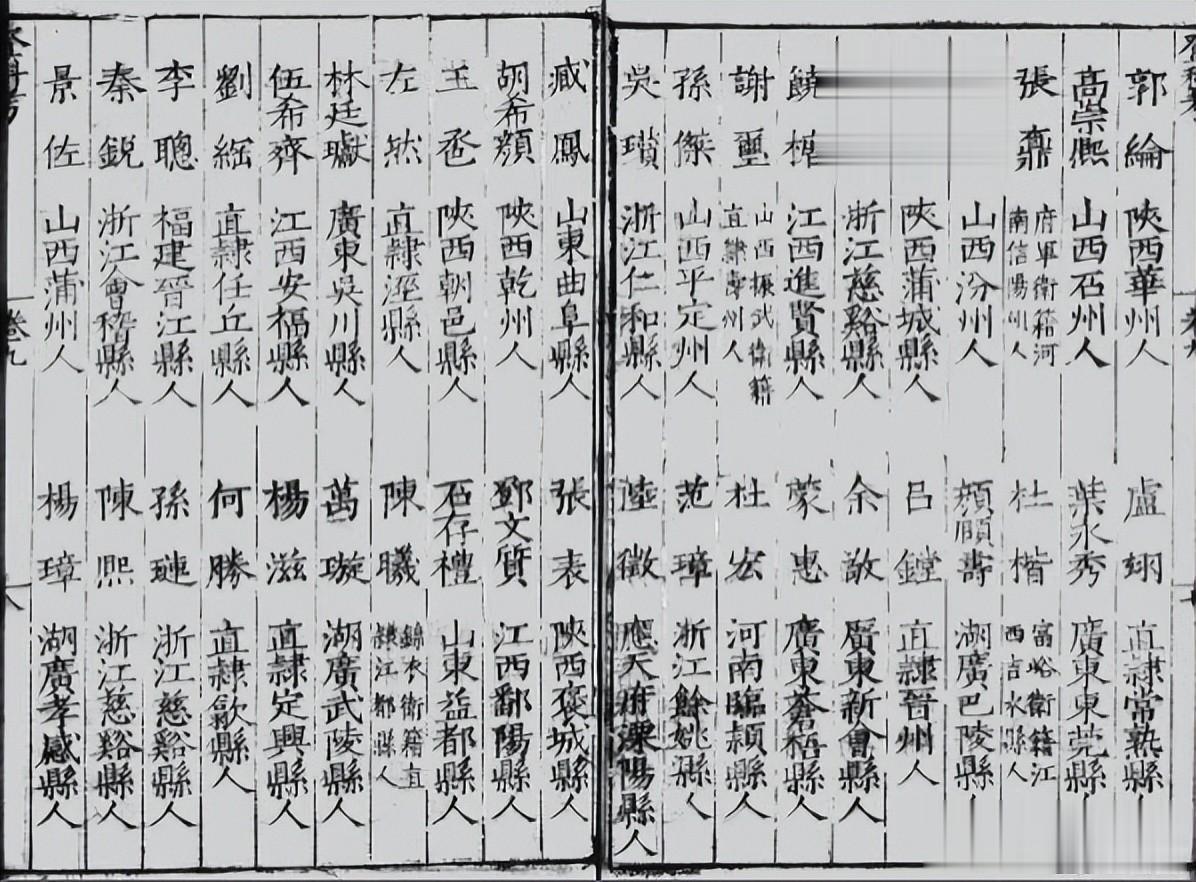 郭綸 陝西華州人 盧翊 直隷常熟縣人
高崇熈 山西石州人 葉永秀 廣東東莞縣人
張鼐 府軍衛籍河南信陽州人 杜楷 富峪衛籍江西吉水縣人
山西汾州人 顔頥壽 湖廣巴陵縣人
陝西蒲城縣人 吕鏜 直隷晉州人
浙江慈谿縣人 余敬 廣東新會縣人
饒 江西進賢縣人 蒙惠 廣東蒼梧縣人
謝璽 山西振武衛籍直隷 州人 杜宏 河南臨頴縣人
孫傑 山西平定州人 范璋 浙江餘姚縣人
吳瓚 浙江仁和縣人 陸徵 應天府溧陽縣人
臧鳳 山東曲阜縣人 張表 陝西褒城縣人
胡希顔 陝西乾州人 鄧文質 江西鄱陽縣人
王丞 陝西朝邑縣人 石存禮 山東益都縣人
左然 直隷涇縣人 陳曦 錦衣衛籍直隷江都縣人
林廷瓛 廣東吳川縣人 萬璇 湖廣武陵縣人
伍希齊 江西安福縣人 楊滋 直隷定興縣人
劉 直隷任丘縣人 何勝 直隷歙縣人
李聰 福建晉江縣人 孫璉 浙江慈谿縣人
秦銳 浙江會稽縣人 陳熈 浙江慈谿縣人
景佐 山西蒲州人 楊璋 湖廣孝感縣人
登科考 卷九 八